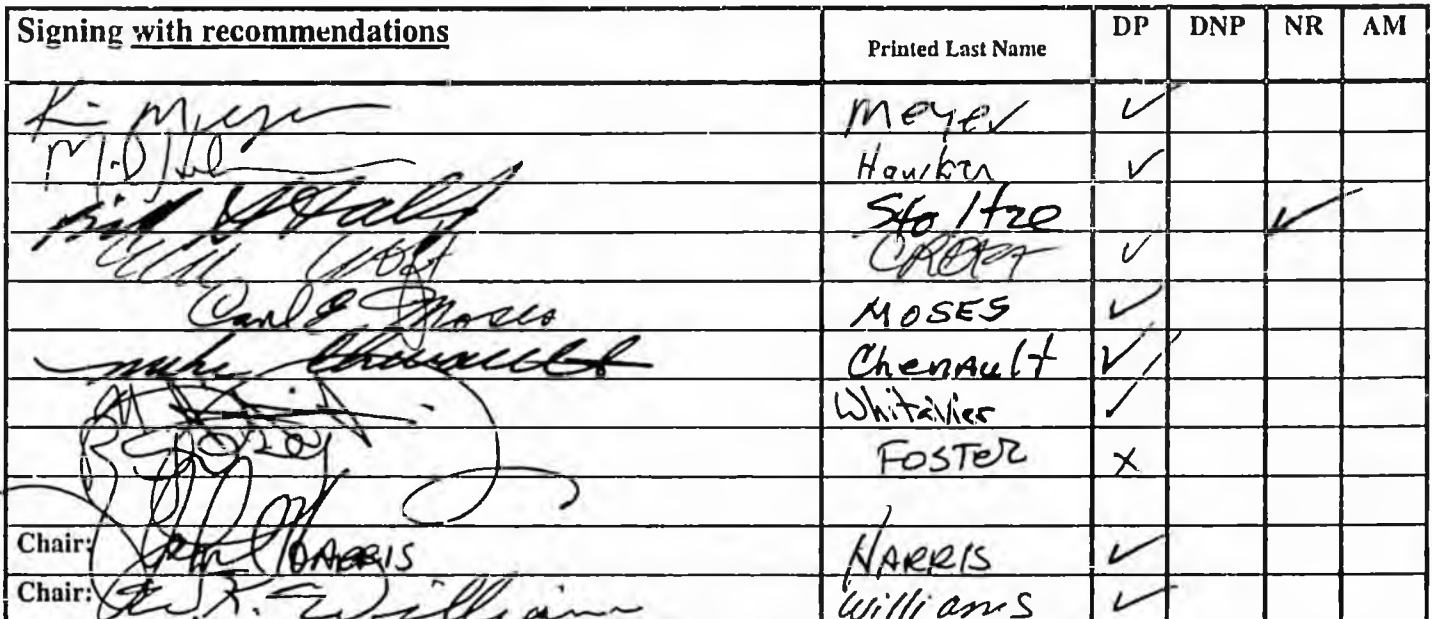 Signing with recommendations Printed Last Name DP DNP NR AM
K- Meyer Meyer ✓
M.D. Hawkin ✓
Bill Stoltze ✓
CROFT ✓
Carl E Moses MOSES ✓
Mike Chenault Chenault ✓
✓
FOSTER x
Chair: HARRIS HARRIS ✓
Chair: K. Williams Williams ✓